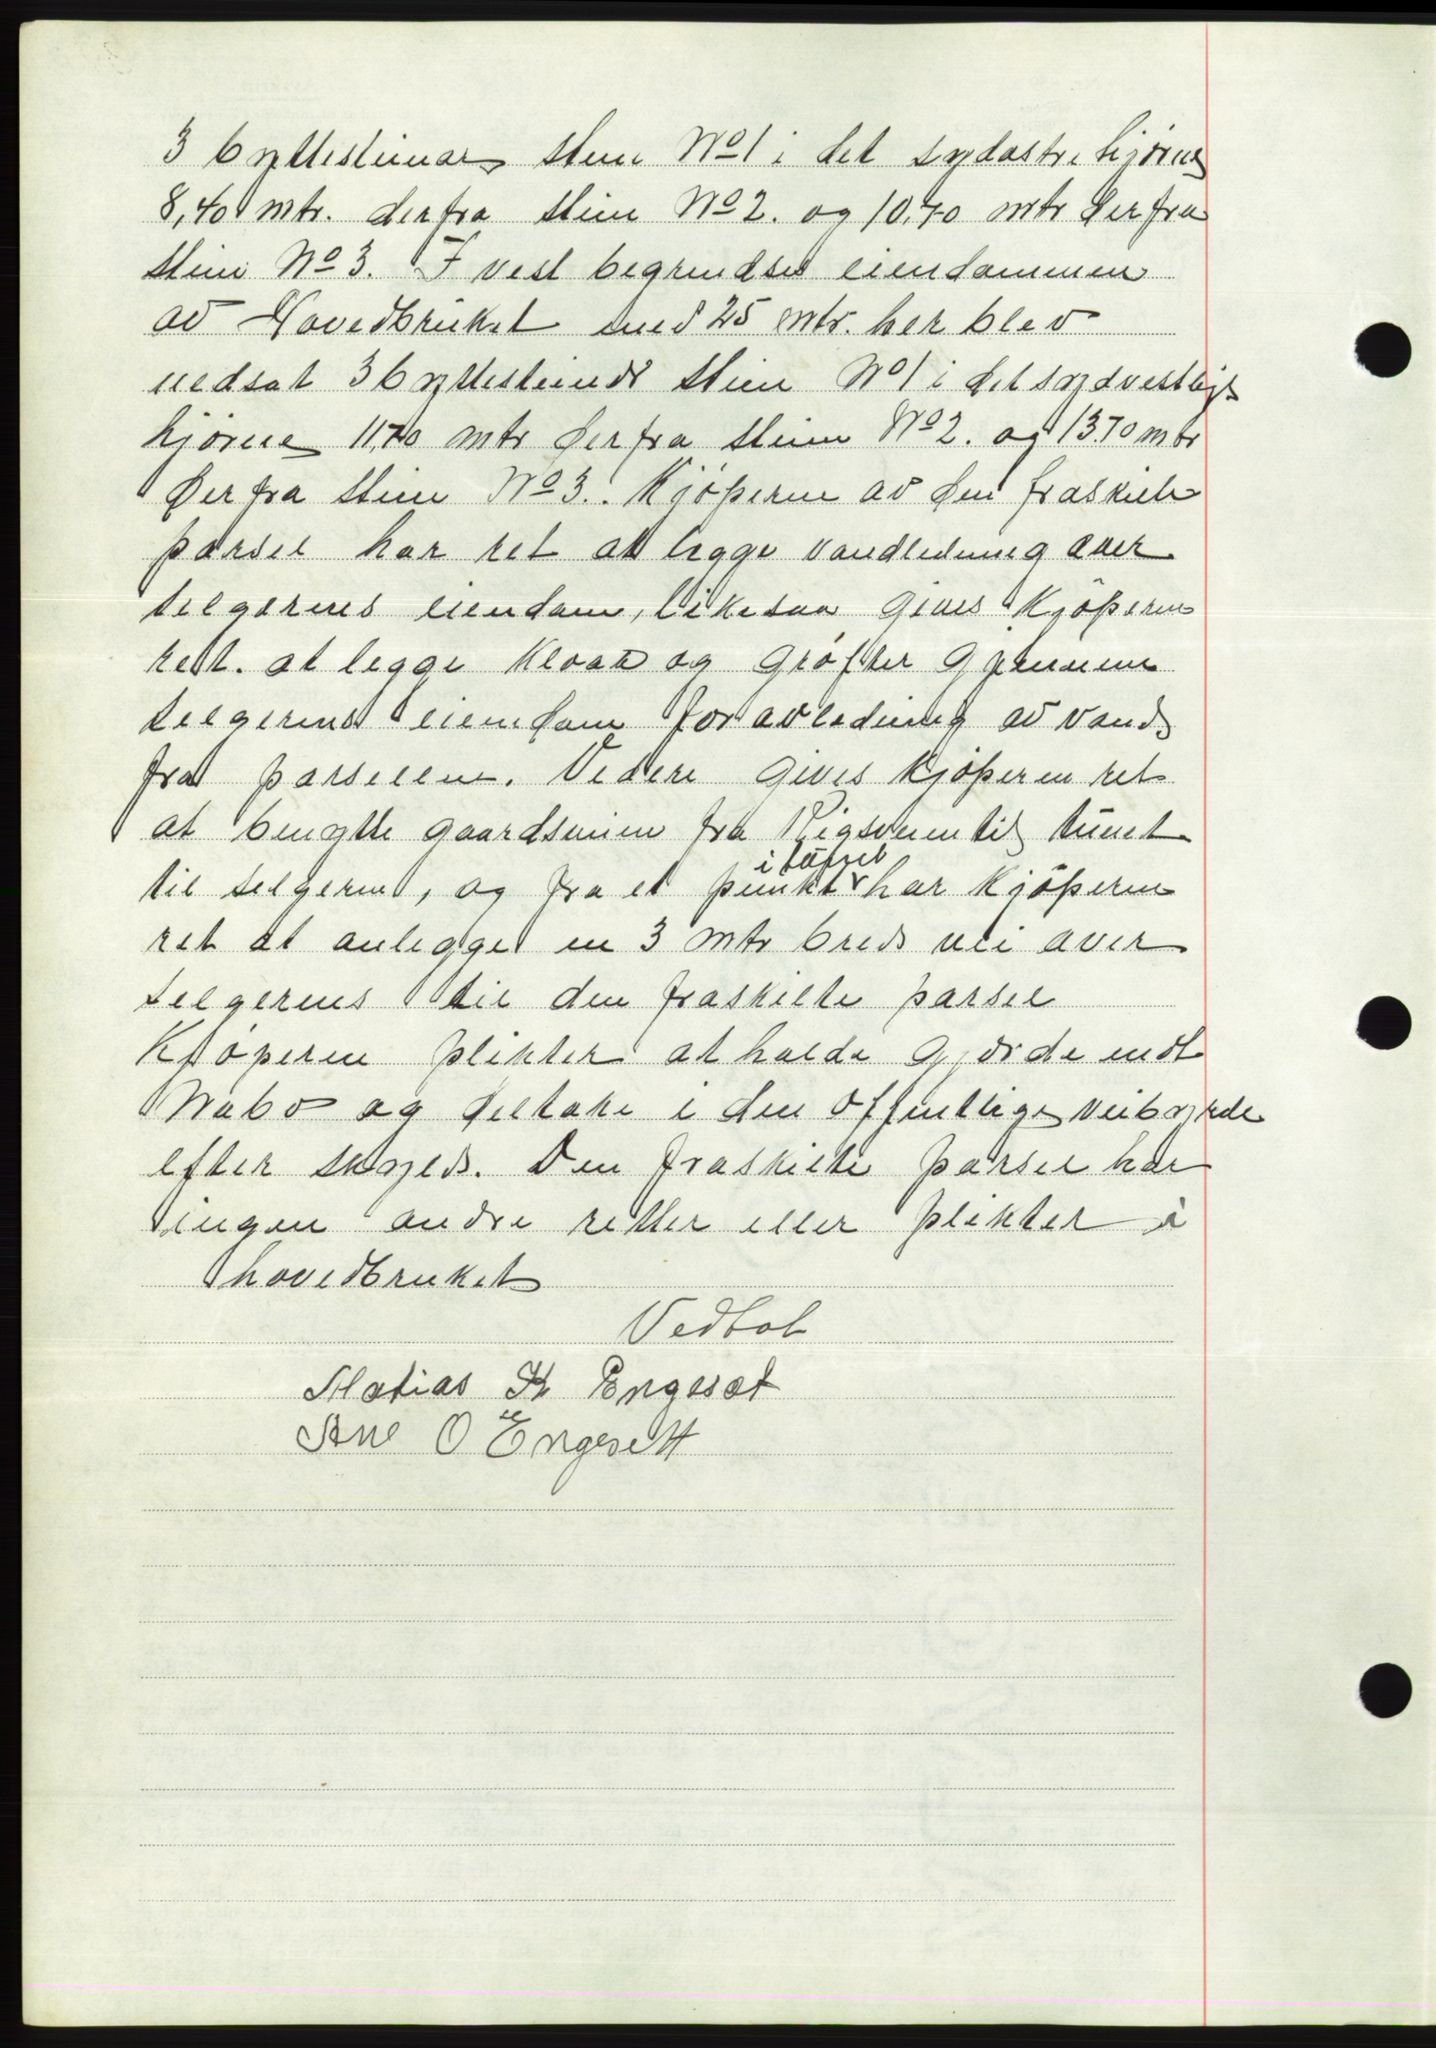 3 byttesteinar, stein No 1 i det sydøstre hjørne
8,40 mtr. derfra stein No 2. og 10,70 mtr derfra
stein No 3. I vest begrendses eiendommen
av Hovedbruket med 25 mtr. her blev
nedsat 3 byttesteinar stein No 1 i det sydvestlige
hjørne 11,70 mtr derfra stein No 2. og 13.70 mtr
derfra stein No 3. Kjøperen av den fraskilte
parsel har ret at legge vandledning over
selgerens eiendom, likesaa gives Kjøperen
ret. at legge kloak og grøfter gjennem
selgerens eiendom for avledning av vand
fra parsellen. Videre gives kjøperen ret
at benytte gaardsveien fra Rigsveien til tunet
til selgeren, og fra et punkt i tunet har Kjøperen
ret at anlegge en 3 mtr bred vei over
selgerens til den fraskilte parsel
Kjøperen plikter at holde gjerde mot
Nabo og deltake i den offentlige veibyrde
efter skyld. Den fraskilte parsel har
ingen andre retter eller plikter i
hovedbruket
Vedtat
Matias K Engeset
Ane O Engesett